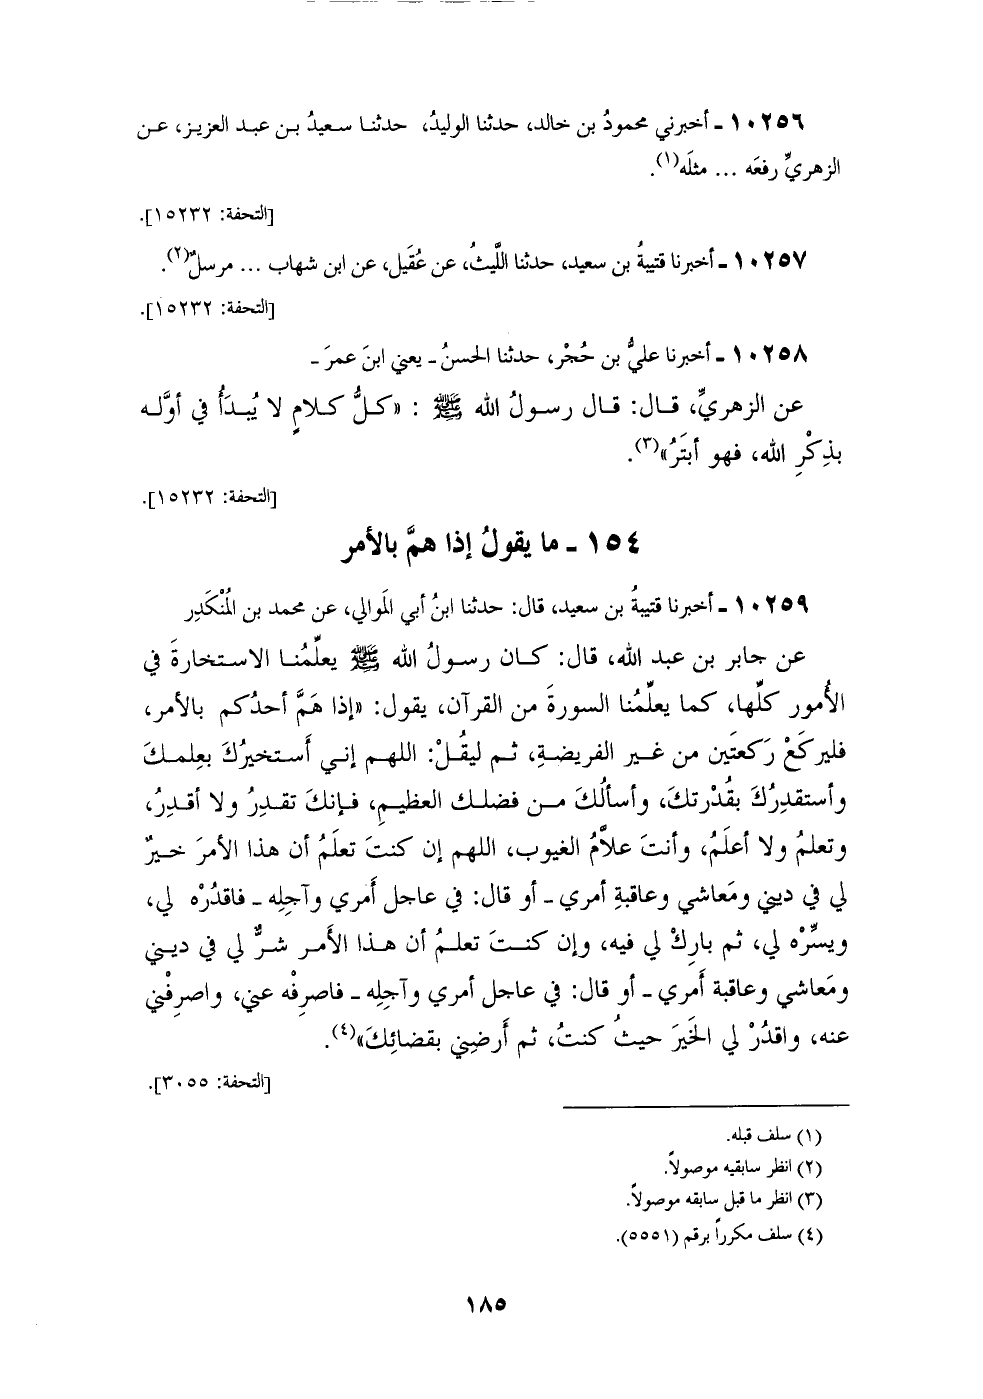 ١٠٢٥٦ ـ أخبرني محمودُ بن خالد، حدثنا الوليدُ، حدثنا سعيدُ بن عبد العزيز، عن
الزهريِّ رفعَه ... مثلَه(١).
[التحفة: ١٥٢٣٢].
١٠٢٥٧ ـ أخبرنا قتيبةُ بن سعيد، حدثنا اللَّيثُ، عن عُقَيل، عن ابن شهاب ... مرسلٌ(٢).
[التحفة: ١٥٢٣٢].
١٠٢٥٨ ـ أخبرنا عليُّ بن حُجْر، حدثنا الحسنُ ـ يعني ابنَ عمرَ ـ
عن الزهريِّ، قال: قال رسولُ الله ﷺ : «كلُّ كلامٍ لا يُبدَأُ في أوَّله
بذِكْرِ الله، فهو أبتَرُ»(٣).
[التحفة: ١٥٢٣٢].
١٥٤ ـ ما يقولُ إذا همَّ بالأمر
١٠٢٥٩ ـ أخبرنا قتيبةُ بن سعيد، قال: حدثنا ابنُ أبي المَوالي، عن محمد بن المُنْكَدِر
عن جابر بن عبد الله، قال: كان رسولُ الله ﷺ يعلِّمُنا الاستخارةَ في
الأُمور كلِّها، كما يعلِّمُنا السورةَ من القرآن، يقول: «إذا هَمَّ أحدُكم بالأمر،
فليركَعْ رَكعتَين من غير الفريضةِ، ثم ليقُلْ: اللهم إني أَستخيرُكَ بعِلمكَ
وأستقدِرُكَ بقُدْرتكَ، وأسألُكَ من فضلك العظيمِ، فإنكَ تقدِرُ ولا أقدِرُ،
وتعلمُ ولا أعلَمُ، وأنتَ علاَّمُ الغيوب، اللهم إن كنتَ تعلَمُ أن هذا الأمرَ خيرٌ
لي في ديني ومَعاشي وعاقبةِ أمري ـ أو قال: في عاجل أَمري وآجلِه ـ فاقدُرْه لي،
ويسِّرْه لي، ثم بارِكْ لي فيه، وإن كنتَ تعلمُ أن هذا الأَمر شرٌّ لي في ديني
ومَعاشي وعاقبة أَمري ـ أو قال: في عاجل أمري وآجلِه ـ فاصرِفْه عني، واصرِفْني
عنه، واقدُرْ لي الخَيرَ حيثُ كنتُ، ثم أَرضِني بقضائِكَ»(٤).
[التحفة: ٣٠٥٥].
(١) سلف قبله.
(٢) انظر سابقيه موصولاً.
(٣) انظر ما قبل سابقه موصولاً.
(٤) سلف مكرراً برقم (٥٥٥١).
١٨٥